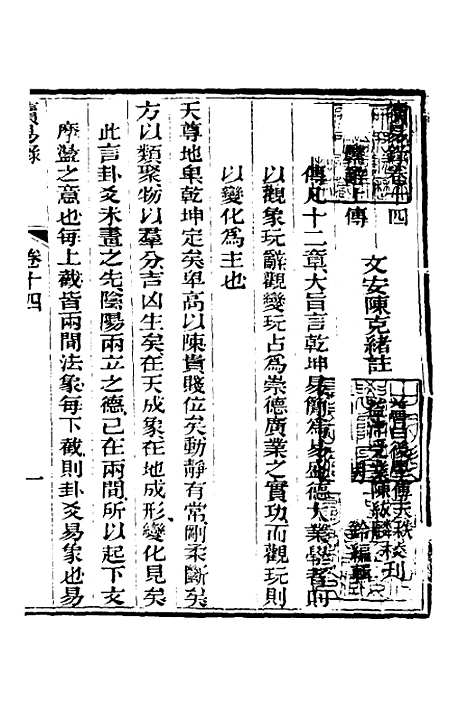 讀易錄卷十四
文安陳克緒註
繫辭上傳
傳凡十二章大旨言乾坤易簡爲易盛德大業學者所
以觀象玩辭觀變玩占爲崇德廣業之實功而觀玩則
以變化爲主也
天尊地卑乾坤定矣卑高以陳貴賤位矣動靜有常剛柔斷矣
方以類聚物以羣分吉凶生矣在天成象在地成形變化見矣
此言卦爻未畫之先陰陽兩立之德已在兩間所以起下文
摩盪之意也每上截皆兩間法象每下截則卦爻易象也易
讀易錄
卷十四
一